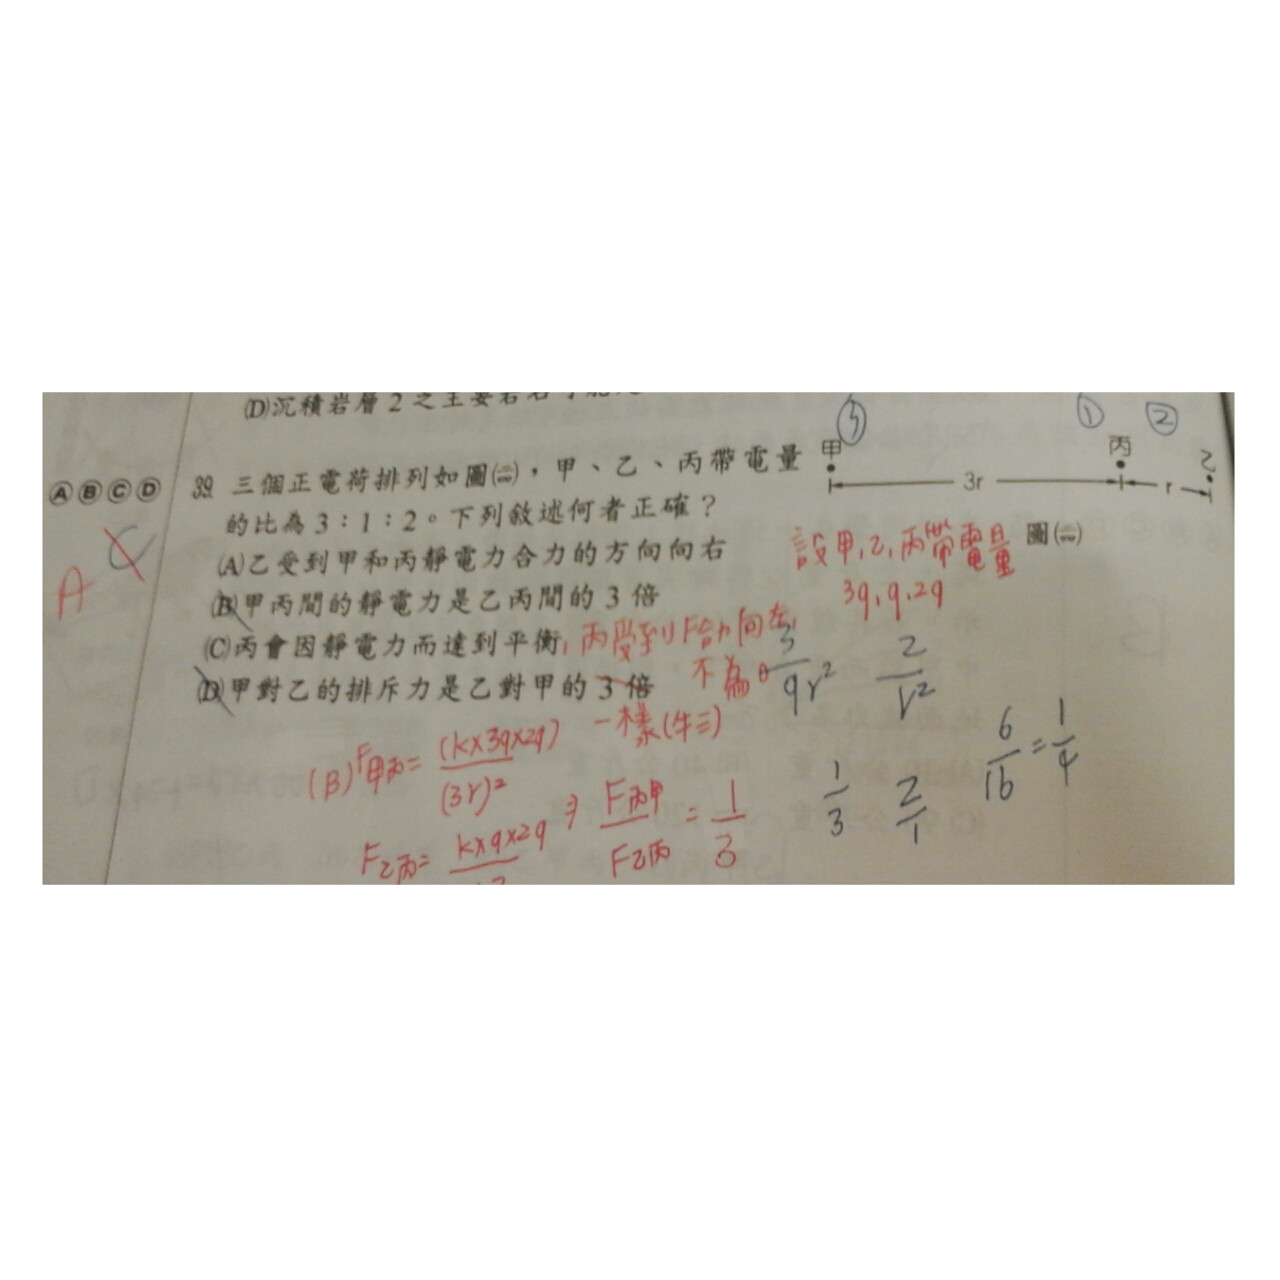 (D)沉積岩層2之主要岩石
③ ① ②
甲 丙 乙
3r r
圖(二)
ⒶⒷⒸⒹ 39. 三個正電荷排列如圖(二),甲、乙、丙帶電量
的比為3:1:2。下列敘述何者正確?
(A)乙受到甲和丙靜電力合力的方向向右
(B)甲丙間的靜電力是乙丙間的3倍
(C)丙會因靜電力而達到平衡,丙受到F合力向左,
不為0
(D)甲對乙的排斥力是乙對甲的3倍
一樣(牛三)
A C
設甲,乙,丙帶電量
3q,q,2q
3/9r² 2/r²
6/16=1/4
1/3 2/1
(B)F甲丙=(k×3q×2q)/(3r)²
F乙丙=k×q×2q
⇒F丙甲/F乙丙=1/3